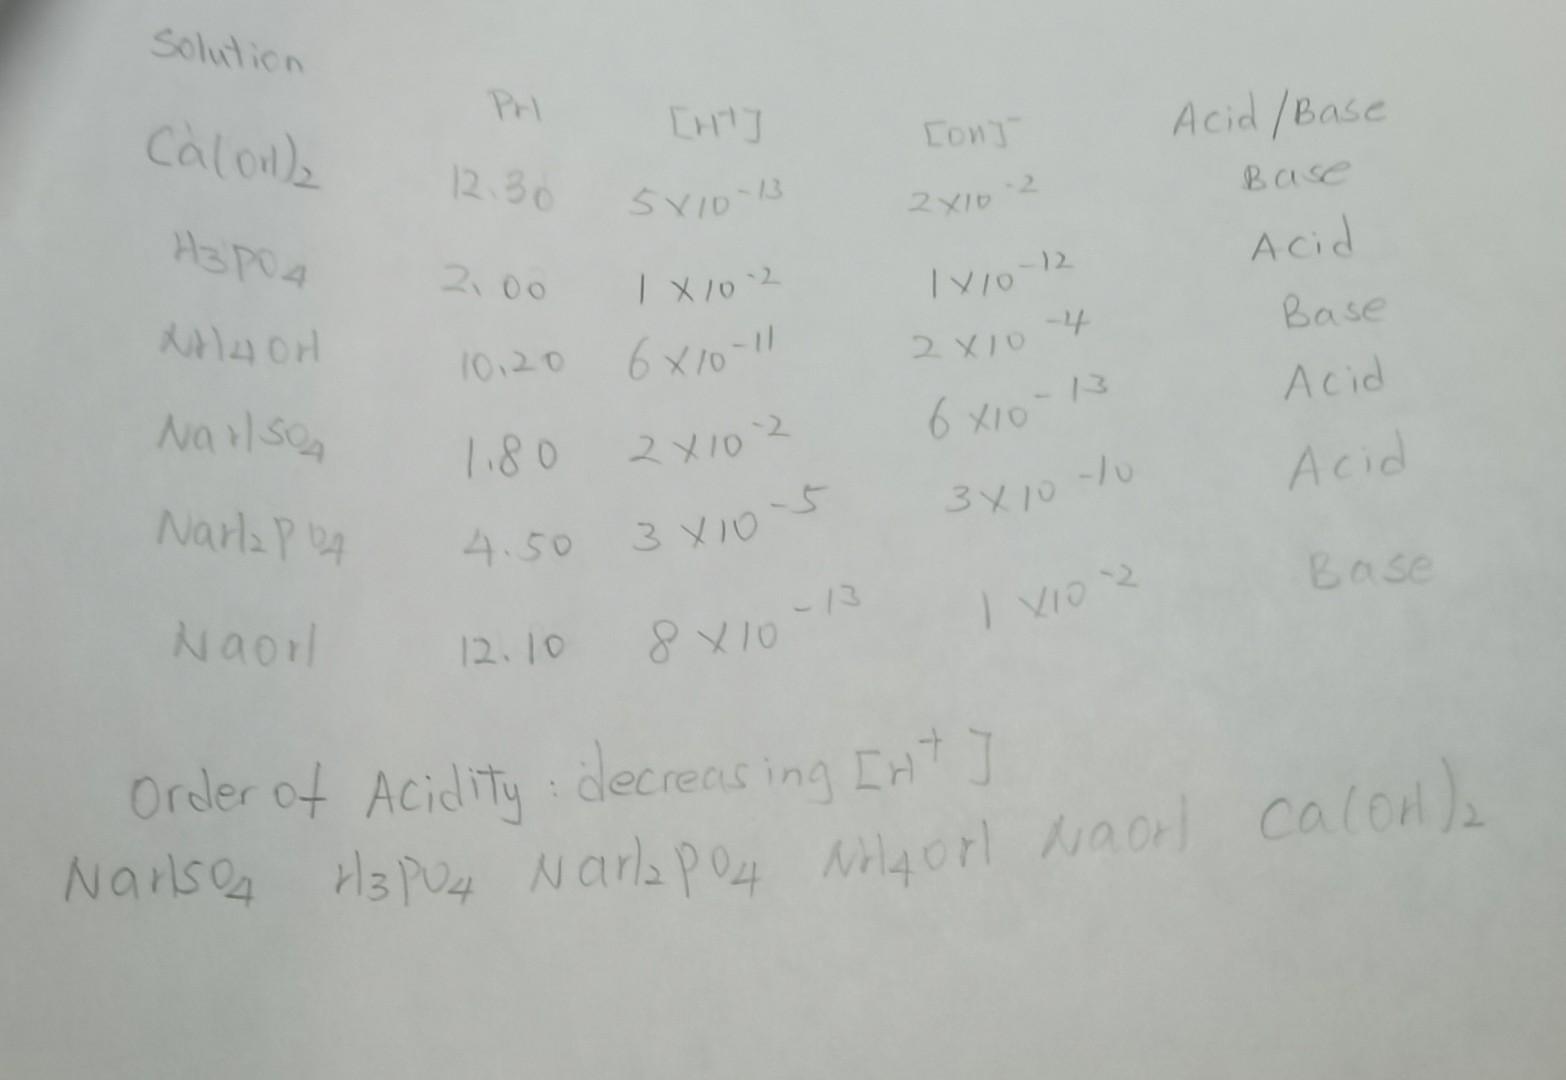 Solution
PH [H+] [OH]⁻ Acid/Base
Ca(OH)₂ 12.30 5×10⁻¹³ 2×10⁻² Base
H3PO4 2.00 1×10⁻² 1×10⁻¹² Acid
NH4OH 10.20 6×10⁻¹¹ 2×10⁻⁴ Base
NaHSO4 1.80 2×10⁻² 6×10⁻¹³ Acid
NaH₂PO4 4.50 3×10⁻⁵ 3×10⁻¹⁰ Acid
NaOH 12.10 8×10⁻¹³ 1×10⁻² Base
Order of Acidity: decreasing [H⁺]
NaHSO4 H3PO4 NaH₂PO4 NH4OH NaOH Ca(OH)₂